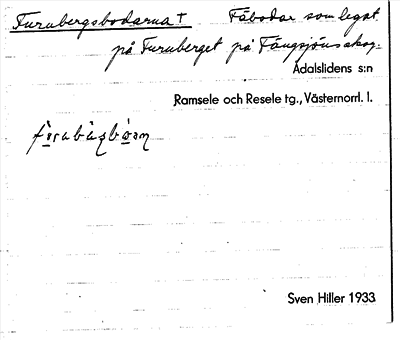 Furubergsbodarna† Fäbodar som legat
på Furuberget på Fängsjöns skog.
Ådalslidens s:n
Ramsele och Resele tg., Västernorrl. l.
Sven Hiller 1933